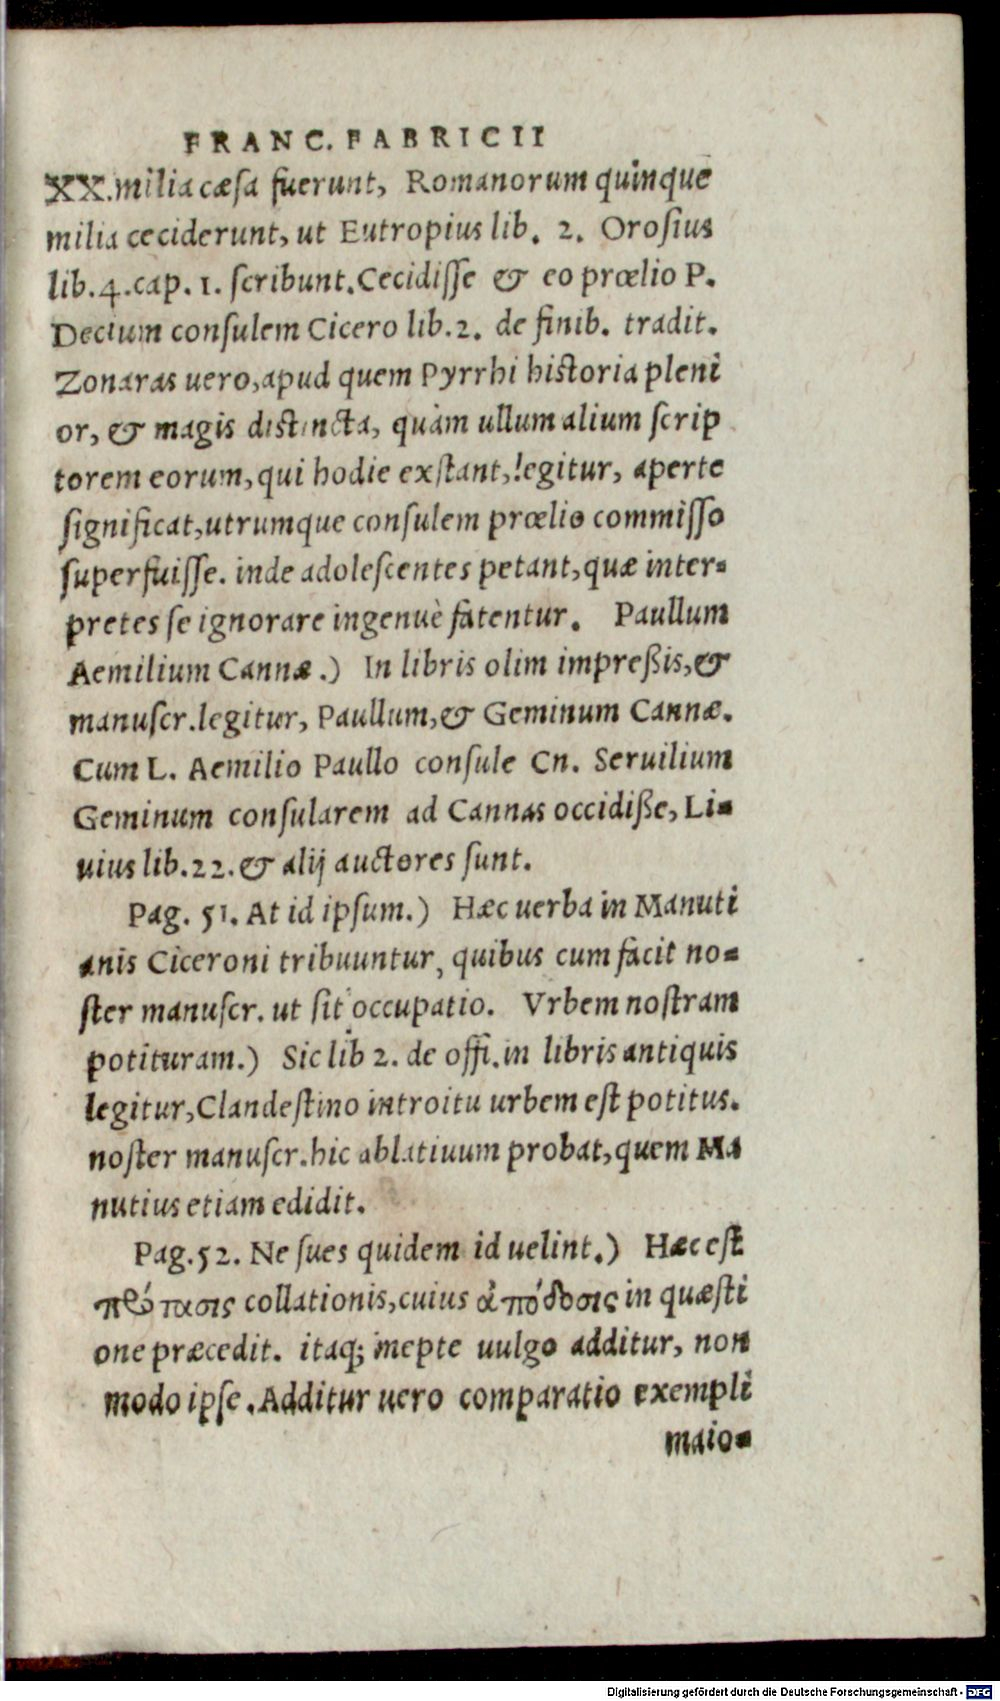 FRANC. FABRICII
XX. milia cæsa fuerunt, Romanorum quinque
milia ceciderunt, ut Eutropius lib. 2. Orosius
lib. 4. cap. 1. scribunt. Cecidisse & eo prœlio P.
Decium consulem Cicero lib. 2. de finib. tradit.
Zonaras uero, apud quem Pyrrhi historia pleni
or, & magis distincta, quàm ullum alium scrip
torem eorum, qui hodie exstant, legitur, aperte
significat, utrumque consulem prœlio commisso
superfuisse. inde adolescentes petant, quæ inter-
pretes se ignorare ingenuè fatentur. Paullum
Aemilium Cannæ.) In libris olim impreßis, &
manuscr. legitur, Paullum, & Geminum Cannæ.
Cum L. Aemilio Paullo consule Cn. Seruilium
Geminum consularem ad Cannas occidiße, Li-
uius lib. 22. & alij auctores sunt.
Pag. 51. At id ipsum.) Hæc uerba in Manuti
anis Ciceroni tribuuntur, quibus cum facit no-
ster manuscr. ut sit occupatio. Vrbem nostram
potituram.) Sic lib 2. de offi. in libris antiquis
legitur, Clandestino introitu urbem est potitus.
noster manuscr. hic ablatiuum probat, quem Ma
nutius etiam edidit.
Pag. 52. Ne sues quidem id uelint.) Hæc est
πρότασις collationis, cuius ἀπόδοσις in quæsti
one præcedit. itaq; inepte uulgo additur, non
modo ipse. Additur uero comparatio exempli
maio-
Digitalisierung gefördert durch die Deutsche Forschungsgemeinschaft - DFG